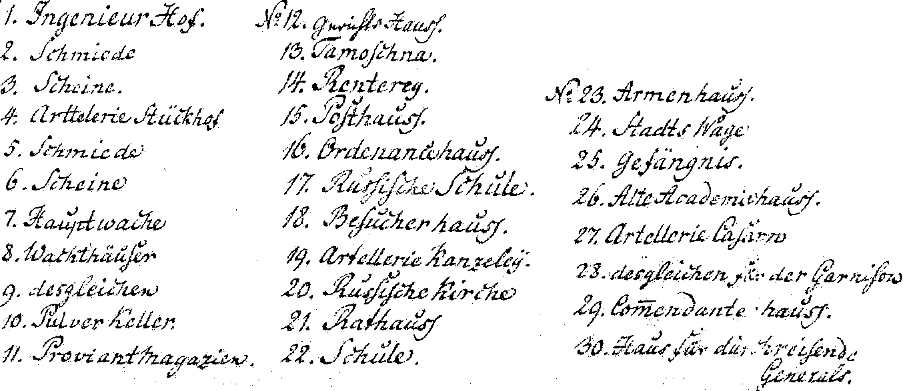 1. Ingenieur Hof.
2. Schmiede
3. Scheine.
4. Arttelerie Stückhof
5. Schmiede
6. Scheine
7. Hauptwache
8. Wackthäuser
9. desgleichen
10. Pulver Keller.
11. Proviantmagazien.
No. 12. Gerichts Hauss.
13. Tamoschna.
14. Renterey.
15. Posthauss.
16. Ordenancehauss.
17. Russische Schule.
18. Besucherhauss.
19. Artellerie Kanzeleÿ.
20. Russische Kirche
21. Rathauss
22. Schule.
No. 23. Armenhauss.
24. Stadts Wage
25. Gefängnis.
26. Alte Academiehauss.
27. Artellerie Casarn
28. desgleichen für der Garnison
29. Com̄endante hauss.
30. Haus für durchreisende
Generals.